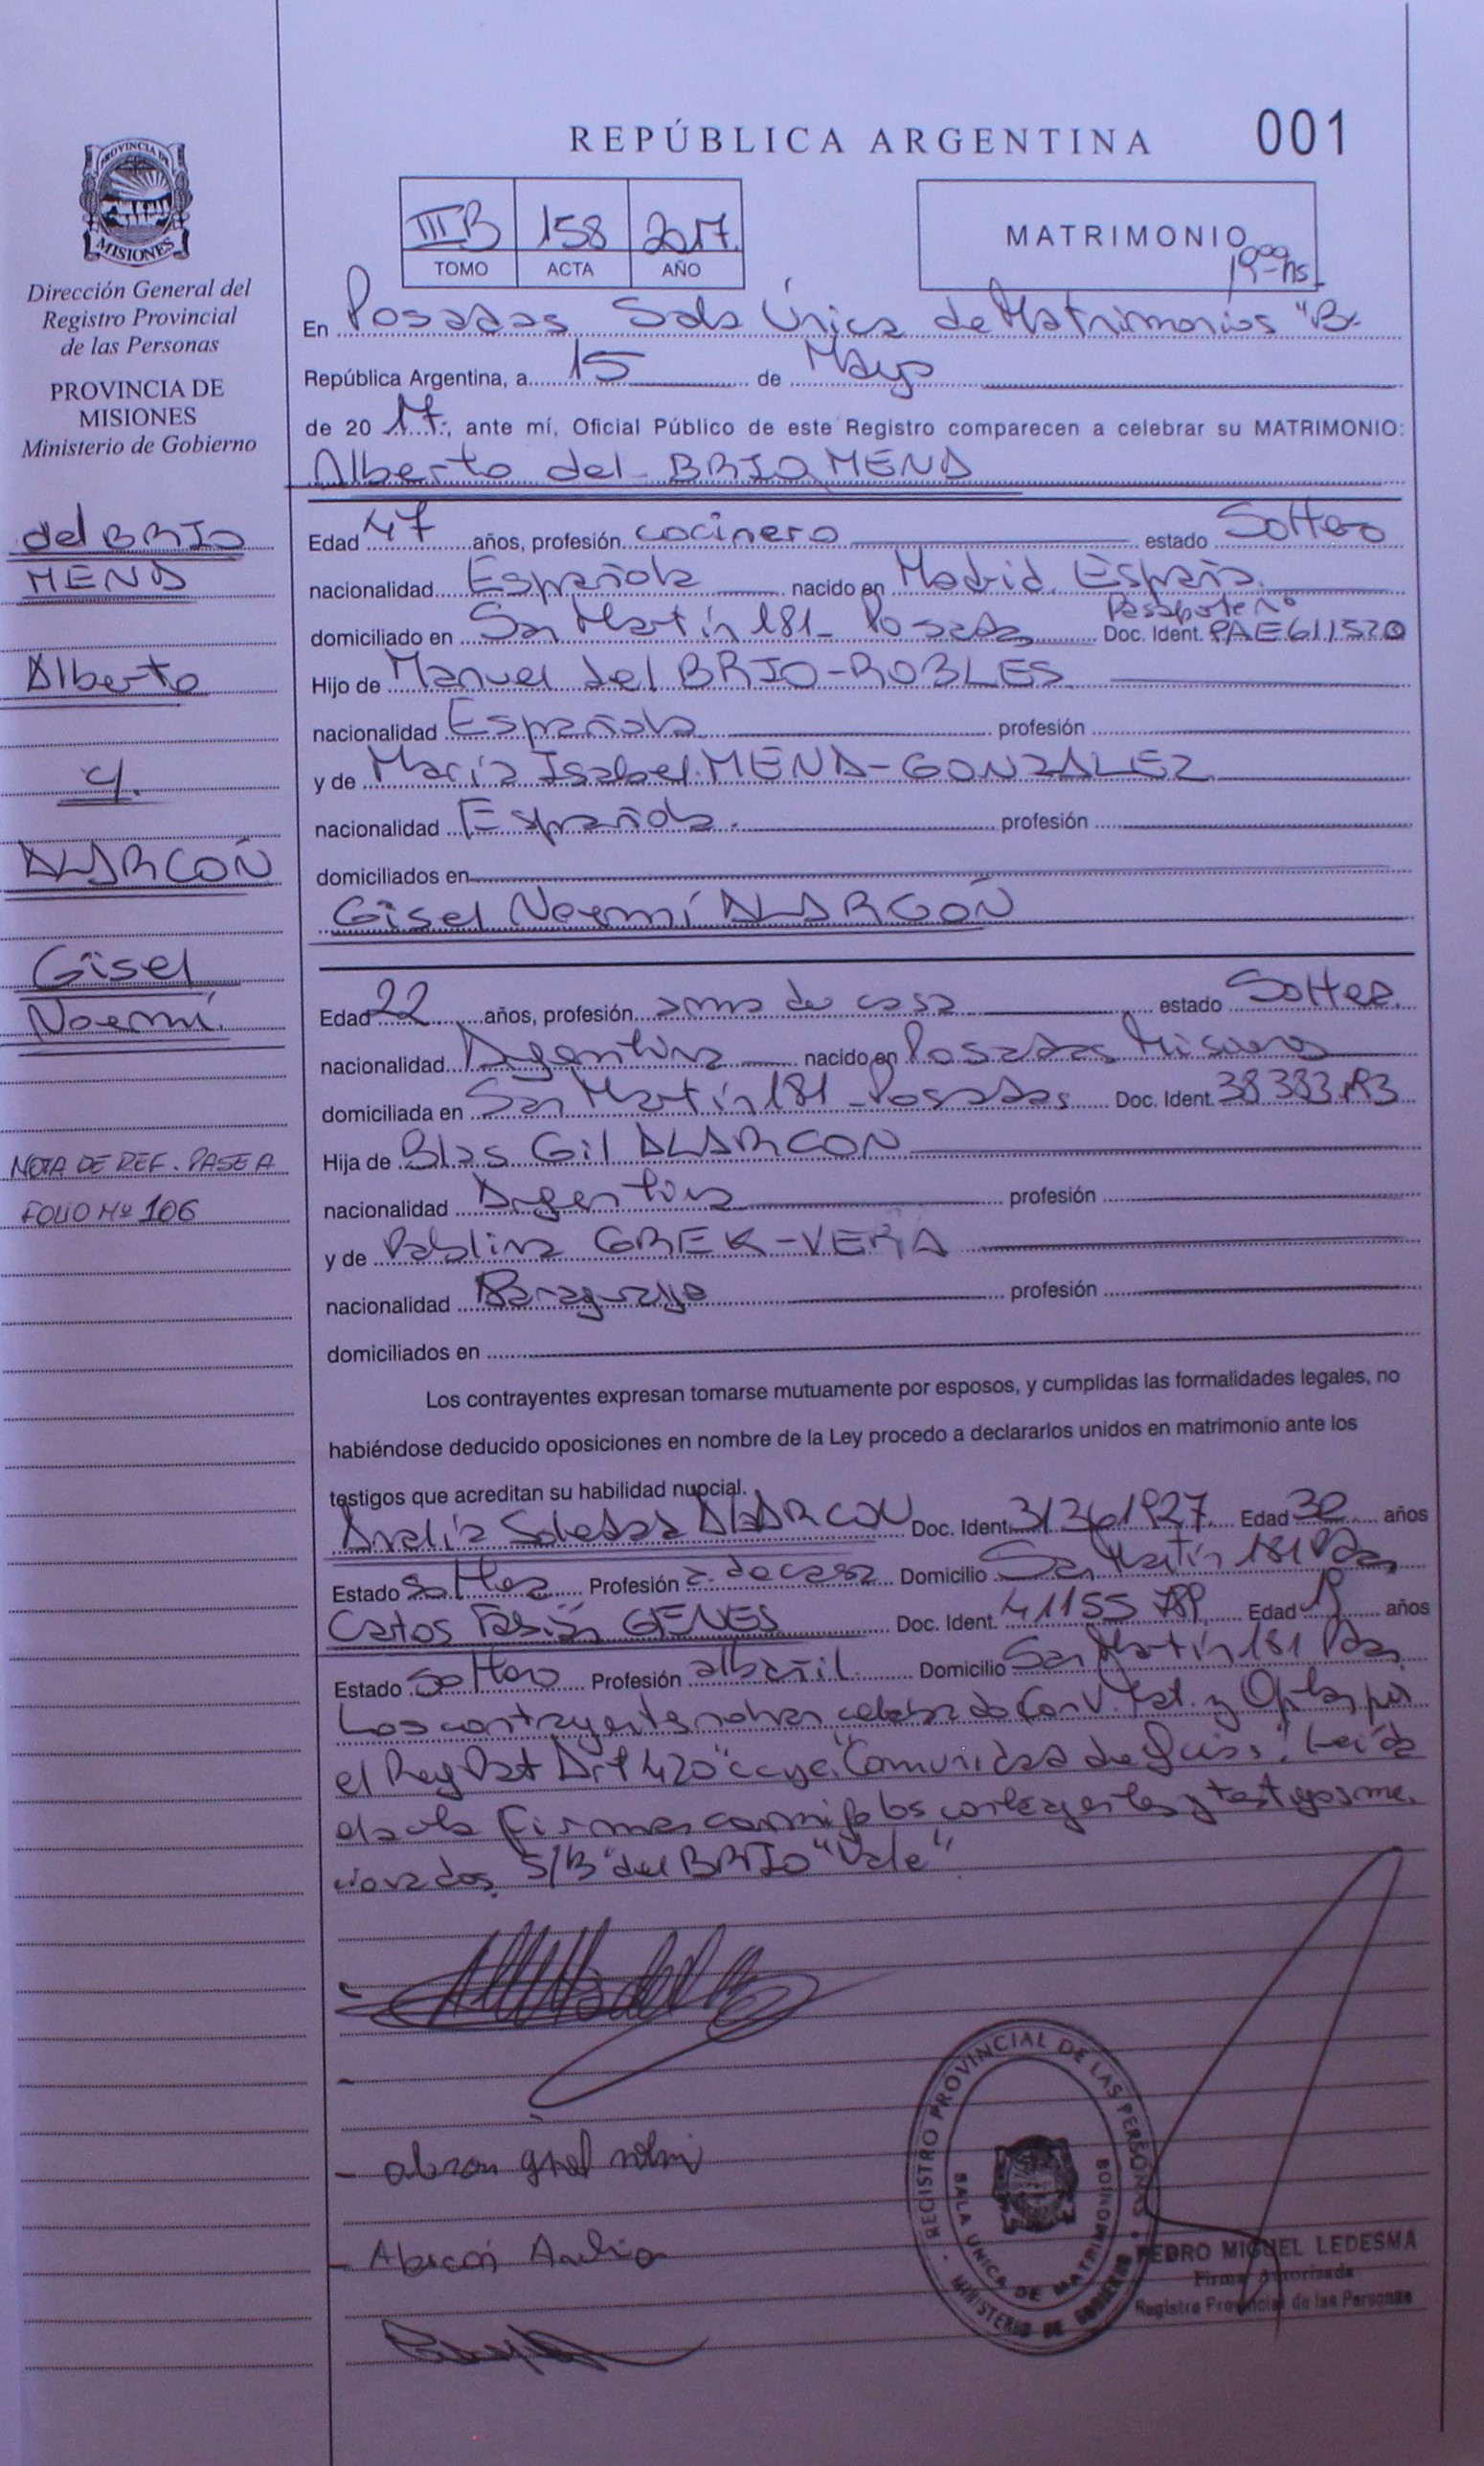 REPÚBLICA ARGENTINA 001
PROVINCIA DE
MISIONES
Dirección General del
Registro Provincial
de las Personas
PROVINCIA DE
MISIONES
Ministerio de Gobierno
III B 158 2017.
TOMO ACTA AÑO
MATRIMONIO
19 hs
En Posadas Sala Única de Matrimonios "B"
República Argentina, a 15 de Mayo
de 20 17, ante mí, Oficial Público de este Registro comparecen a celebrar su MATRIMONIO:
Alberto del BRIO MENA
del BRIO
MENA
Alberto
c/.
ALARCOÑ
Gisel
Noemí.
NOTA DE REF. PASE A
FOLIO Nº 106
Edad 47 años, profesión cocinero estado Soltero
nacionalidad Española nacido en Madrid. España.
Pasaporte nº
domiciliado en San Martín 181_ Posadas Doc. Ident. PAE611520
Hijo de Manuel del BRIO-ROBLES
nacionalidad Española profesión
y de María Isabel MENA-GONZALEZ
nacionalidad Española. profesión
domiciliados en
Gisel Noemí ALARCOÑ
Edad 22 años, profesión ama de casa estado Soltera.
nacionalidad Argentina nacido en Posadas Misiones
domiciliada en San Martín 181_ Posadas Doc. Ident. 38383
Hija de Blas Gil ALARCON
nacionalidad Argentina profesión
y de Pablina GREK-VERA
nacionalidad Paraguaya profesión
domiciliados en
Los contrayentes expresan tomarse mutuamente por esposos, y cumplidas las formalidades legales, no
habiéndose deducido oposiciones en nombre de la Ley procedo a declararlos unidos en matrimonio ante los
testigos que acreditan su habilidad nupcial.
Analía Soledad ALARCON Doc. Ident. 31361927. Edad 32 años
Estado Soltera Profesión a. de casa Domicilio San Martín 181 Pdas
Carlos Fabián GENES Doc. Ident. 41155 Edad 19 años
Estado Soltero Profesión albañil. Domicilio San Martín 181 Pdas.
Los contrayentes no han celebrado Conv. Mat. y Optan por
el Reg Pat Art 420 "ccyc" "Comunidad de " Leída
el acta firman conmigo los contrayentes y testigos men
cionados. S/B "del BRIO" "Vale".
Alarcón Analia
REGISTRO PROVINCIAL DE LAS PERSONAS
SALA UNICA DE MATRIMONIOS
MINISTERIO DE GOBIERNO
PEDRO MIGUEL LEDESMA
Firma Autorizada
Registro Provincial de las Personas